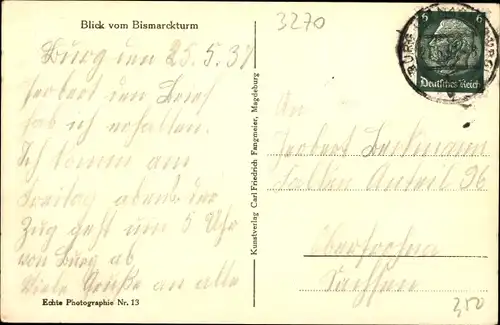 Blick vom Bismarckturm
3270
Burg den 25.5.37
Herbert den Brief
hab ich erhalten.
Ich komm am
Freitag abend der
Zug geht um 5 Uhr
von Burg ab
Viele Grüße an alle
Echte Photographie Nr. 13
Kunstverlag Carl Friedrich Fangmeier, Magdeburg
6 6
Deutsches Reich
An
Herbert
96
Oberfrohna
Sachsen
350